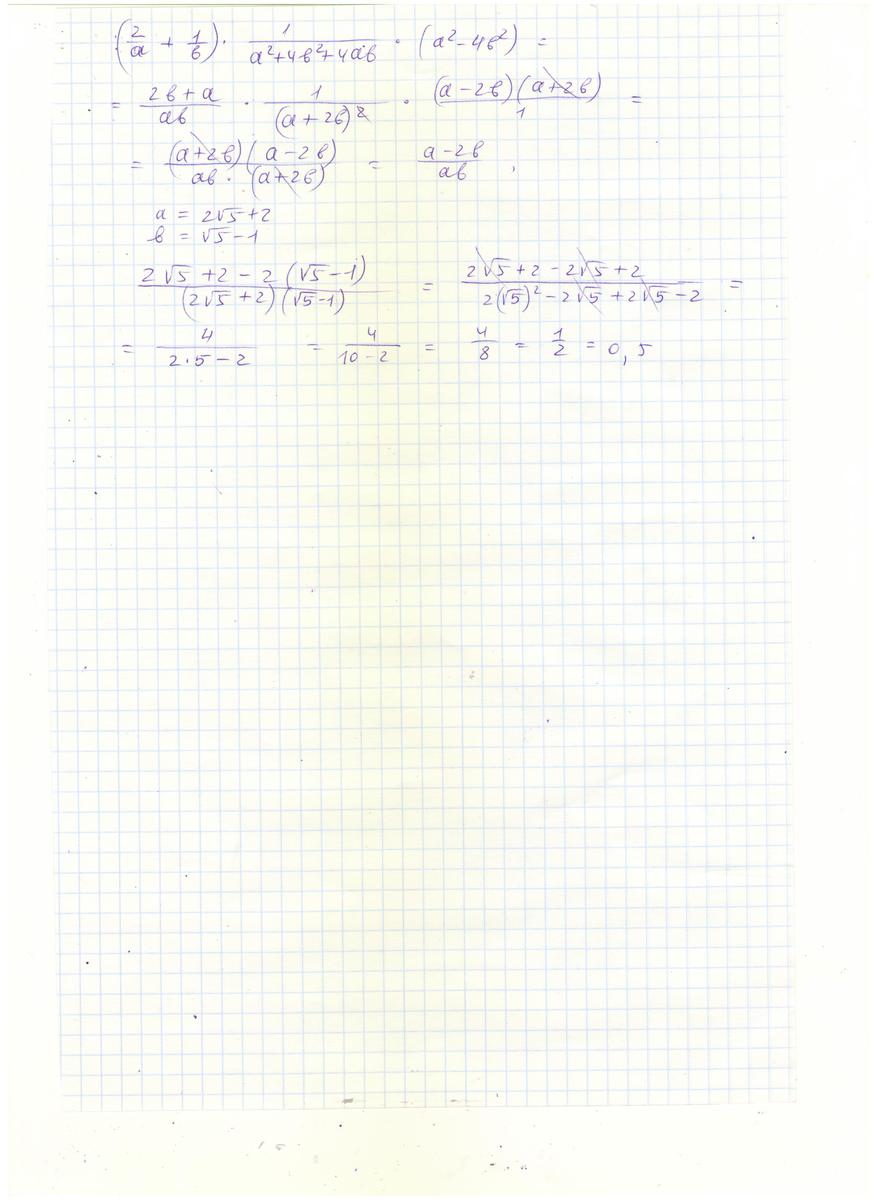 (2/a + 1/в) · 1/(a²+4в²+4aв) · (a²-4в²) =
= (2в+a)/(aв) · 1/(a+2в)² · (a-2в)(a+2в)/1 =
= (a+2в)(a-2в)/(aв·(a+2в)) = (a-2в)/(aв) .
a = 2√5+2
в = √5-1
(2√5+2-2(√5-1))/((2√5+2)(√5-1)) = (2√5+2-2√5+2)/(2(√5)²-2√5+2√5-2) =
= 4/(2·5-2) = 4/(10-2) = 4/8 = 1/2 = 0,5